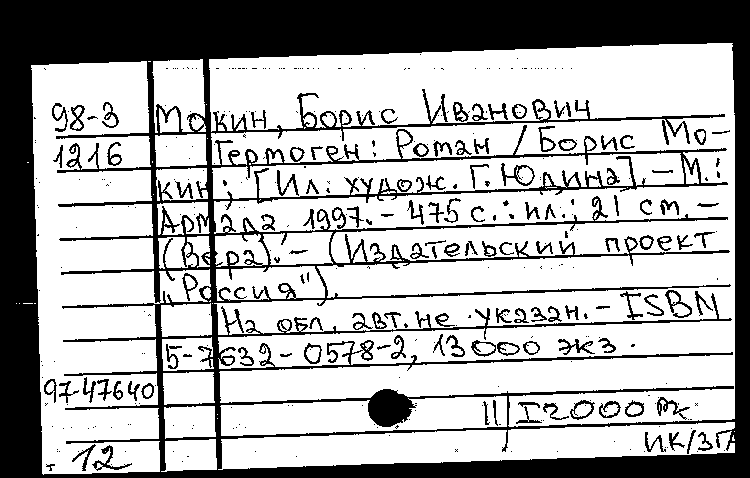 98-3 Мокин, Борис Иванович
1216 Гермоген: Роман / Борис Мо-
кин; [Ил. худож. Г. Юдина]. - М.:
Армада, 1997. - 475 с.: ил.; 21 см. -
(Вера). - (Издательский проект
"Россия").
На обл. авт. не указан. - ISBN
5-7632-0578-2, 13000 экз.
97-47640
11 I2000
- 12 ИК/ЗГА